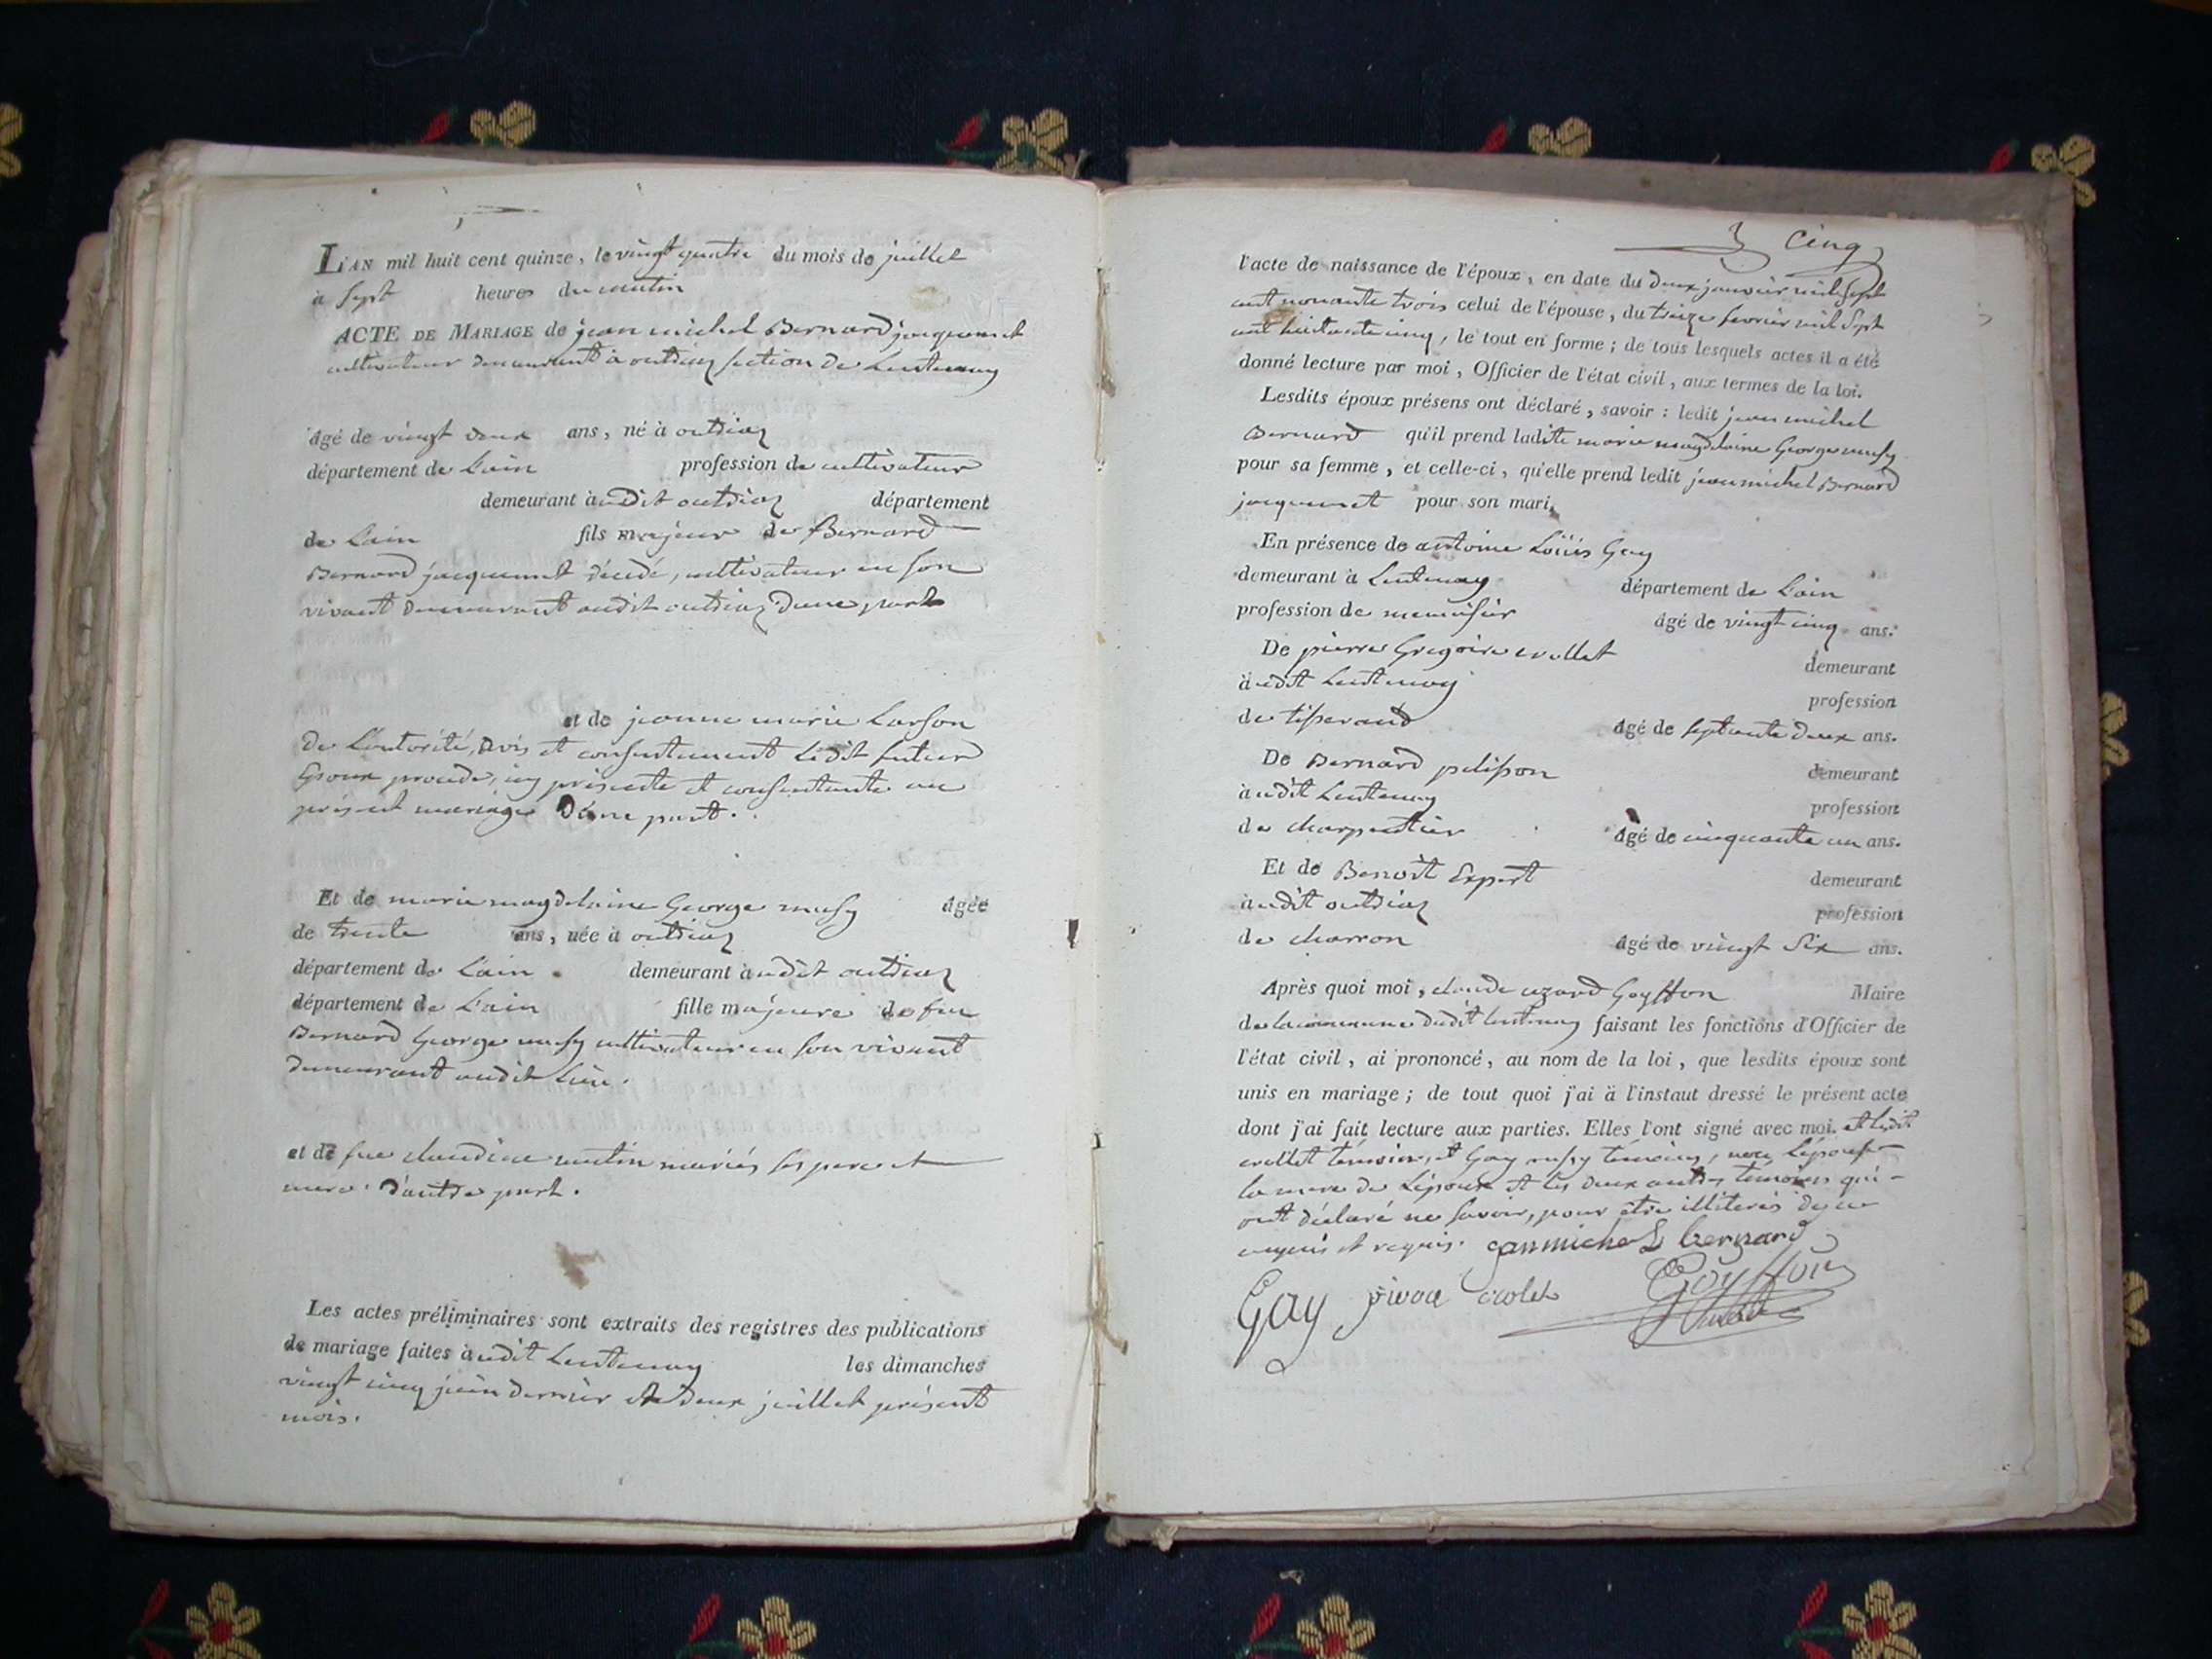 L'AN mil huit cent quinze, le vingt quatre du mois de juillet
à Sept heures du matin
ACTE DE MARIAGE de jean michel Bernard jacquemet
cultivateur demeurant à outriaz section de Lentenay
âgé de vingt deux ans, né à outriaz
département de L'ain profession de cultivateur
demeurant à udit outriaz département
de L'ain fils majeur de Bernard
Bernard jacquemet décédé, cultivateur en son
vivant demeurant audit outriaz d'une part
et de jeanne marie Larson
De L'autorité, avis et consentement Ledit futur
Epoux procède, icy présente et consentante au
présent mariage D'une part.
Et de marie magdelaine George musy âgée
de trente ans, née à outriaz
département de L'ain demeurant à udit outriaz
département de L'ain fille majeure de feu
Bernard George musy cultivateur en son vivant
demeurant audit lieu.
et de feue claudine mariés ses pere et
mere d'autre part.
Les actes préliminaires sont extraits des registres des publications
de mariage faites à udit Lentenay les dimanches
vingt cinq juin dernier et deux juillet présent
mois.
Cinq
l'acte de naissance de l'époux, en date du deux janvier mil Sept
cent nonante trois celui de l'épouse, du treize fevrier mil Sept
cent huitante cinq, le tout en forme ; de tous lesquels actes il a été
donné lecture par moi, Officier de l'état civil, aux termes de la loi.
Lesdits époux présens ont déclaré, savoir : ledit jean michel
Bernard qu'il prend ladite marie magdelaine George musy
pour sa femme, et celle-ci, qu'elle prend ledit jean michel Bernard
jacquemet pour son mari,
En présence de antoine Loüis Gay
demeurant à Lentenay département de L'ain
profession de menuisier âgé de vingt cinq ans.
De pierre Gregoire crollet demeurant
à udit Lentenay profession
de tisserand âgé de septante deux ans.
De Bernard pelisson demeurant
à udit Lentenay profession
de charpentier âgé de cinquante un ans.
Et de Benoît Expert demeurant
à udit outriaz profession
de charron âgé de vingt Six ans.
Après quoi moi, claude Goyffon Maire
de la commune dudit lentenay faisant les fonctions d'Officier de
l'état civil, ai prononcé, au nom de la loi, que lesdits époux sont
unis en mariage ; de tout quoi j'ai à l'instaut dressé le présent acte
dont j'ai fait lecture aux parties. Elles l'ont signé avec moi. et Ledit
crollet témoin, et Gay témoins, non L'épouse
la mere de L'époux et les deux autres témoins qui
ont déclaré ne savoir, pour être illiterés de ce
enquis et requis. jean michel bernard
Gay crolet Goyffon